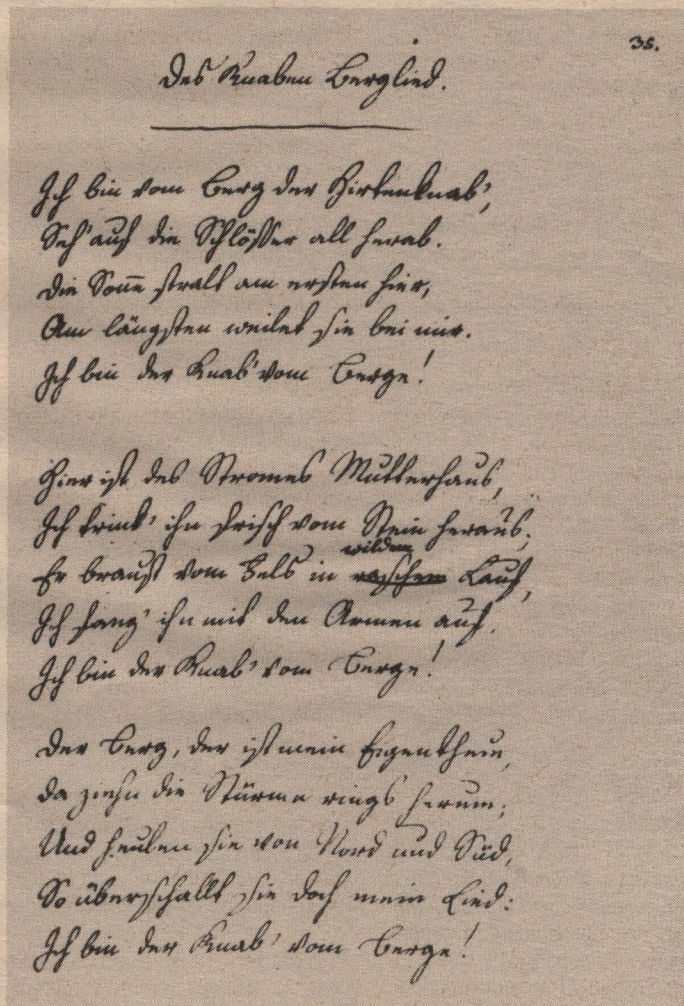 35.
Des Knaben Berglied.
Ich bin vom Berg der Hirtenknab',
Seh' auf die Schlösser all herab.
Die Sonne stralt am ersten hier,
Am längsten weilet sie bei mir.
Ich bin der Knab' vom Berge!
Hier ist des Stromes Mutterhaus,
Ich trink' ihn frisch vom Stein heraus;
wildem
Er braust vom Fels in raschem Lauf,
Ich fang' ihn mit den Armen auf.
Ich bin der Knab' vom Berge!
Der Berg, der ist mein Eigenthum,
Da ziehn die Stürme rings herum;
Und heulen sie von Nord und Süd,
So überschallt sie doch mein Lied:
Ich bin der Knab' vom Berge!